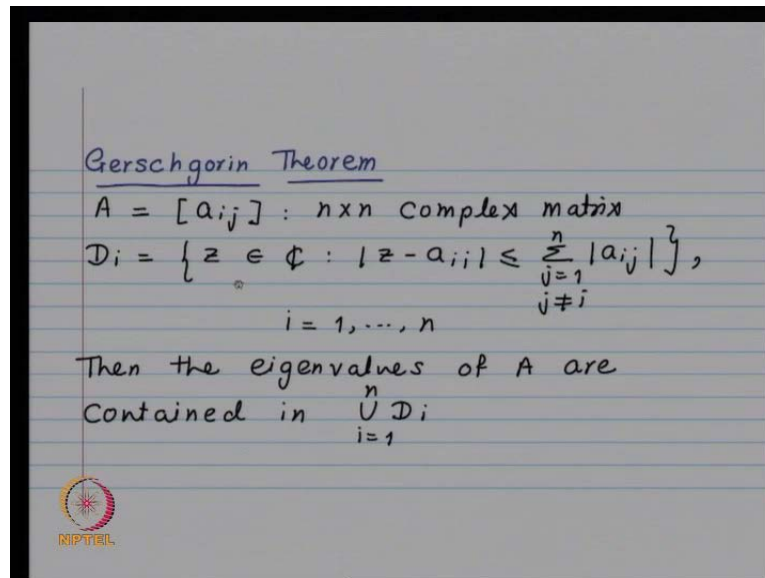 Gerschgorin Theorem
A = [aij] : n×n complex matrix
Di = { z ∈ ₵ : |z - aii| ≤ n∑j=1 j≠i |aij| },
i = 1, ..., n
Then the eigenvalues of A are
contained in n∪i=1 Di
NPTEL